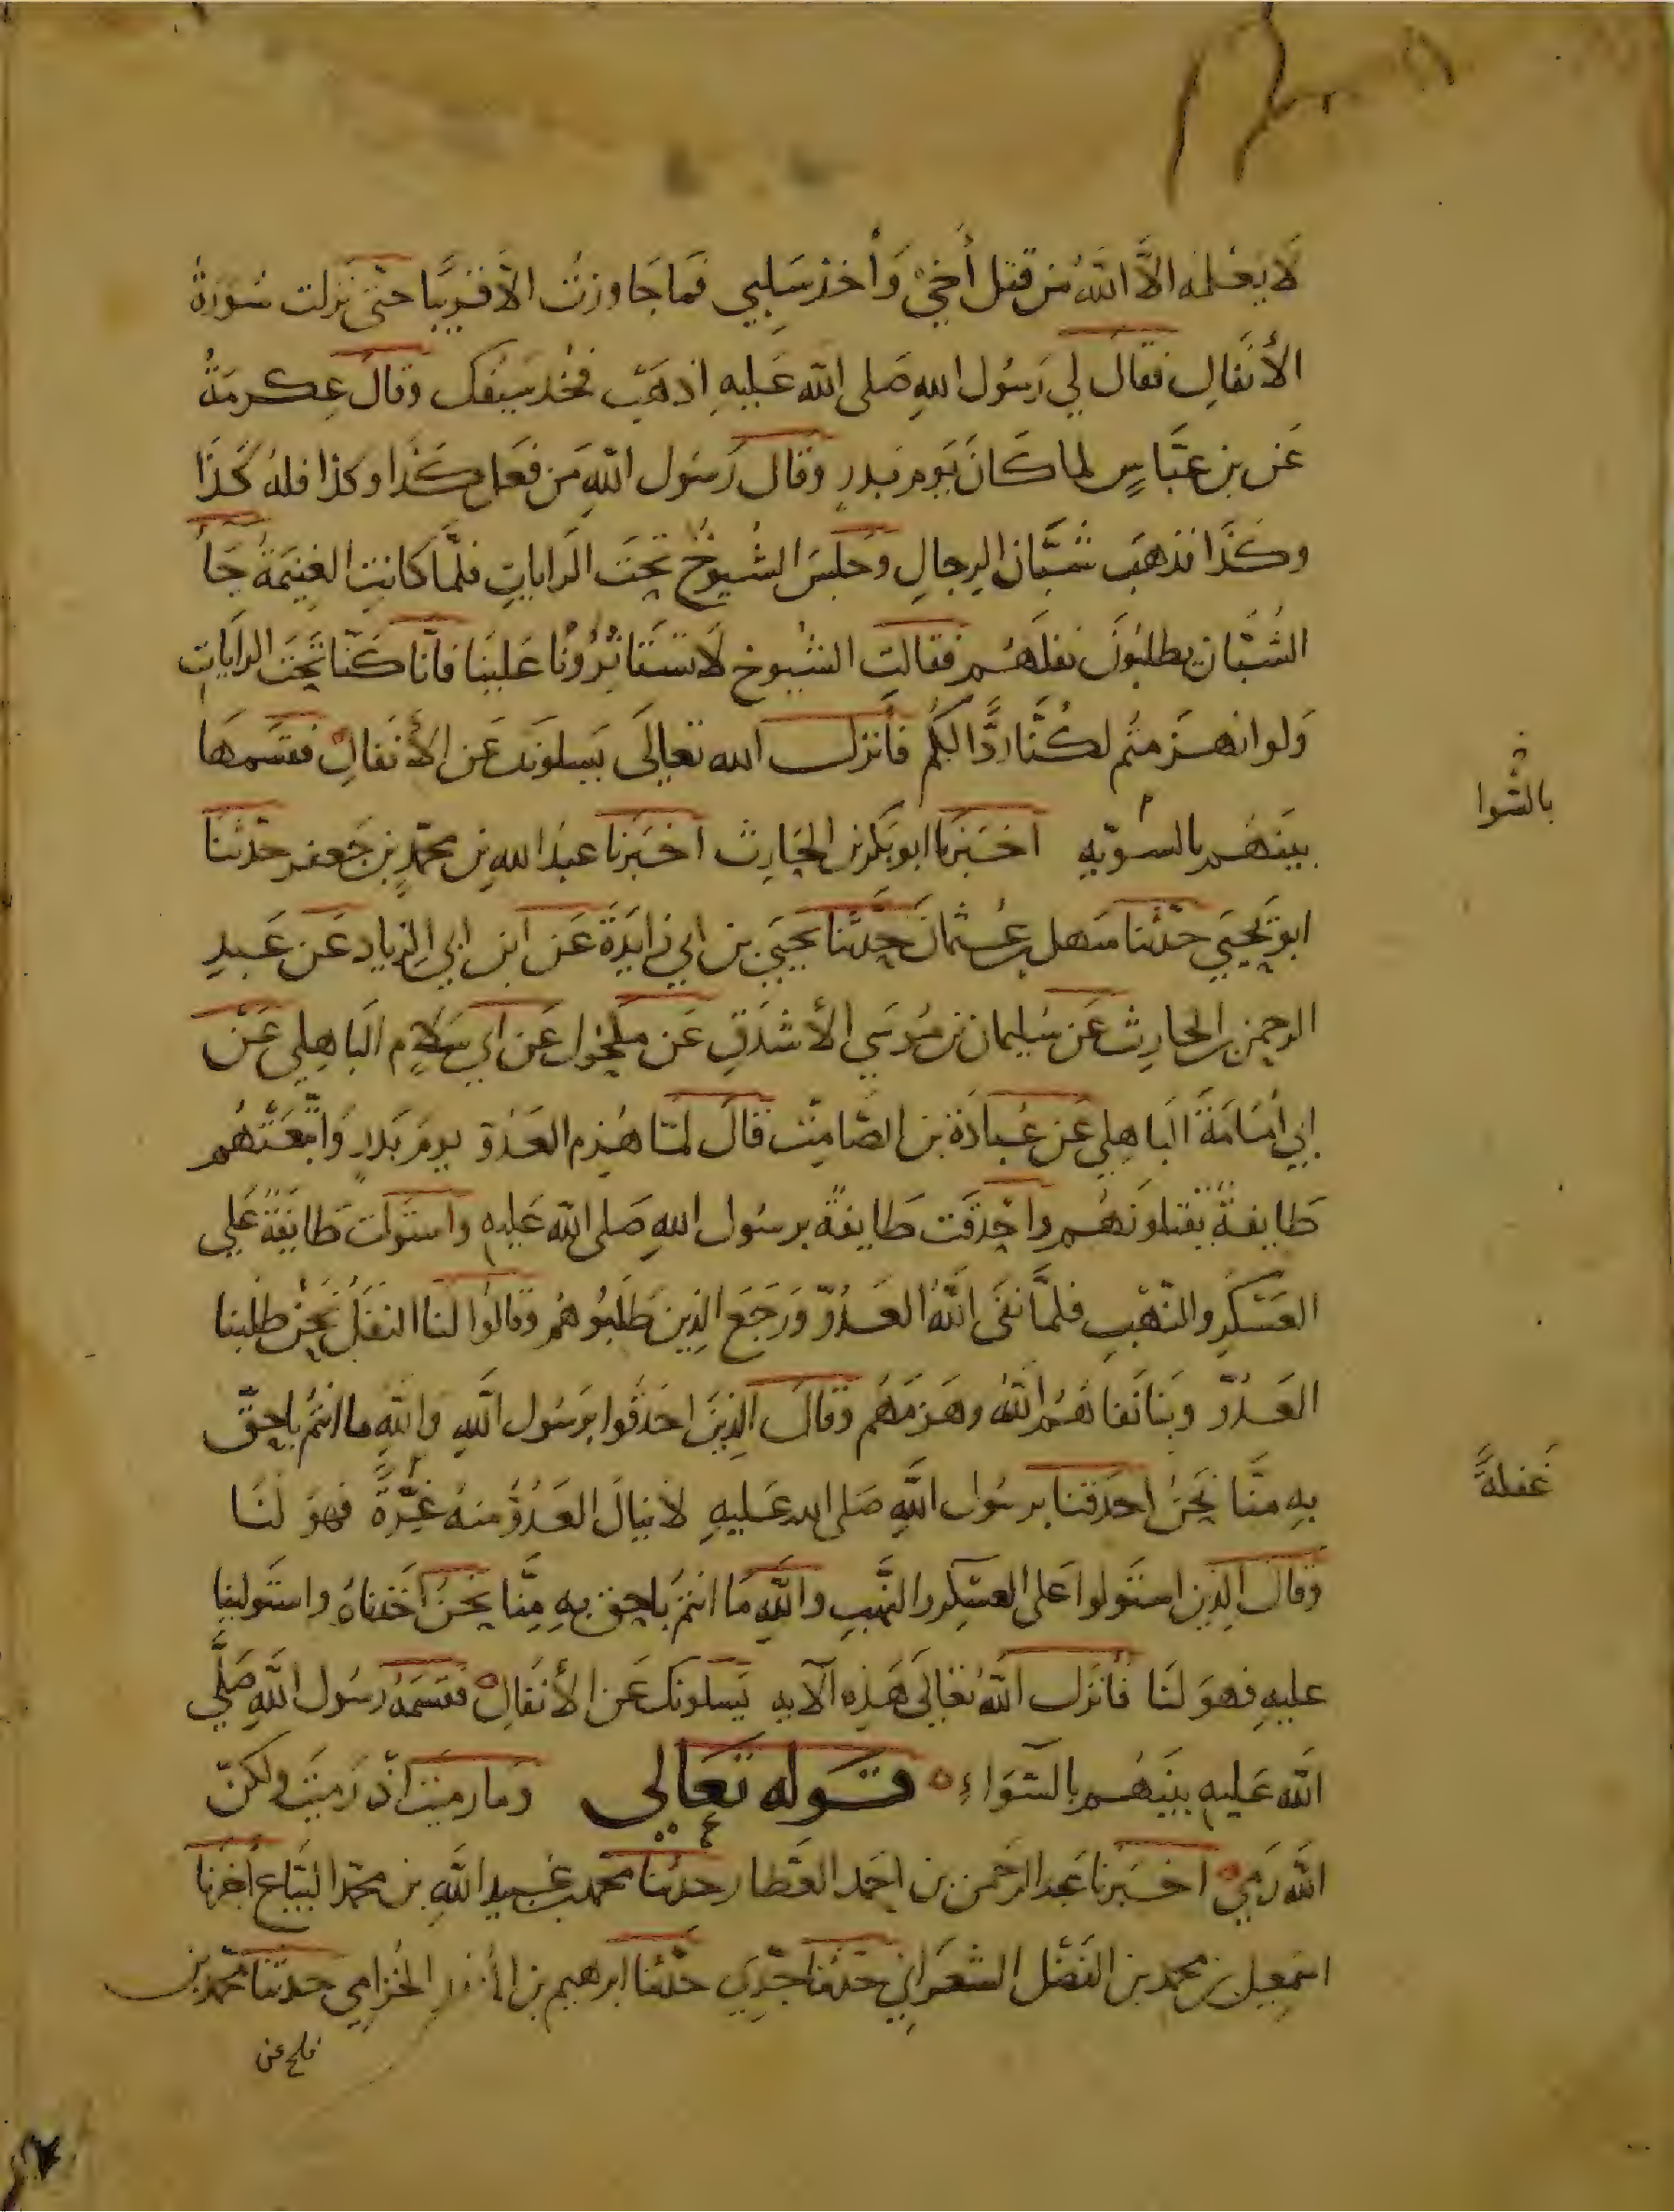 لَا يَعْلمُه الَّا اللهُ مِن قتل أَخِيْ وَأخذ سَلَبِي فمَا جَاوزتُ الَّا قريبًا حتى نَزلت سُورَةُ
الأنفالِ فقالَ لي رَسُول اللهِ صَلى الله عَليهِ اذهَبْ فخُذ سَيفك وقالَ عِكرمَةُ
عَن بن عبَّاسٍ لما كانَ يَوم بَدرٍ وقالَ رَسُول اللهِ مَن فعَل كَذا وكذا فلهُ كَذَا
وكَذا فذهَبَ شُبَّان الرِجالِ وَجلسَ الشُيوخُ تحتَ الراياتِ فلمَّا كانتِ الغنِيمَةُ جَأَ
الشُبَّان يطلبُونَ نفلَهُم فقالت الشيُوخ لَا تَستَأثِرُوْنَا عَلينَا فانَّا كنّا تَحتَ الرَايَاتِ
وَلو انهَزمتُم لكُنَّا ردًّا لكُم فأنزل الله تعالَى يَسلونَك عَن الأنفالِ فقسَمهَا
بينَهُم بالسويّه اخبَرنا ابو بَكر بن الحَارث اخبَرنا عبدُ اللهِ بن محمّدٍ بن جَعفر حدّثنا
بالسَّوا
ابو يَحيَي حدّثنا سَهل بن عُثمانَ حدَّثنا يحيَى بن ابي زايدَةَ عَن ابن ابي الزِياد عَن عَبدِ
الرحمن بن الحارِث عَن سُليمان بن مُوسَي الأشدَقِ عَن مَكحُول عَن ابي سَلامٍ البَاهِلي عَن
ابِي أُمَامَةَ البَاهِلي عَن عُبادَةَ بن الصّامِت قالَ لمّا هُزِم العَدُوّ يومَ بَدرٍ وَاتَّبَعَتْهُم
طَايفةٌ يَقتلونَهُم واحْدقَت طَايفةٌ برسُول اللهِ صَلى الله عَليهِ واستَولت طَايفَةٌ عَلي
العَسْكرِ والنّهْبِ فلمَّا نفَى اللهُ العَدُوّ وَرَجَعَ الذِين طَلَبُوهُم وقالُوا لَنا النفَلُ نَحْنُ طَلبنا
العَدُوّ وبِنَا نَفاهُم اللهُ وهَزمَهُم وقالَ الذِينَ احدَقُوا برَسُول اللهِ وَاللهِ ما انتُم باحقّ
بِهِ منَّا نَحنُ احدَقنا برسُول اللهِ صَلى الله عَليهِ لأ ينالَ العَدُوُّ منهُ غِرَّةً فهوَ لَنَا
غَفلةً
وقالَ الذِين استَولوا عَلى العسْكرِ والنَّهبِ واللهِ مَا انتُم باحق بِهِ مِنَّا نَحنُ اخَذناهُ واستَولينا
عليهِ فهوَ لنَا فأنزَل اللهُ تعَالَى هَذِه الآيه يَسلونك عَن الأنفَالِ فقسَمَهُ رَسُول اللهِ صَلَّي
الله عَليهِ بينَهُم بالسَّوَاءِ قوله تعَالي ومَا رميتَ اذْ رَميتَ ولكنّ
اللهَ رَمي اخبَرنا عبد الرَحمن بن احمَد العَطار حدثنا محمد بن عُبيد اللهِ بن محمّد البَيّاع أخبرنا
اسمعِيل بن محمد بن الفَضْل الشعْرَاني حدّثنا جَدّي حدّثنا ابرهيم بن المنذر الحُزامِي حدثنا محمّد بن
فليح عن